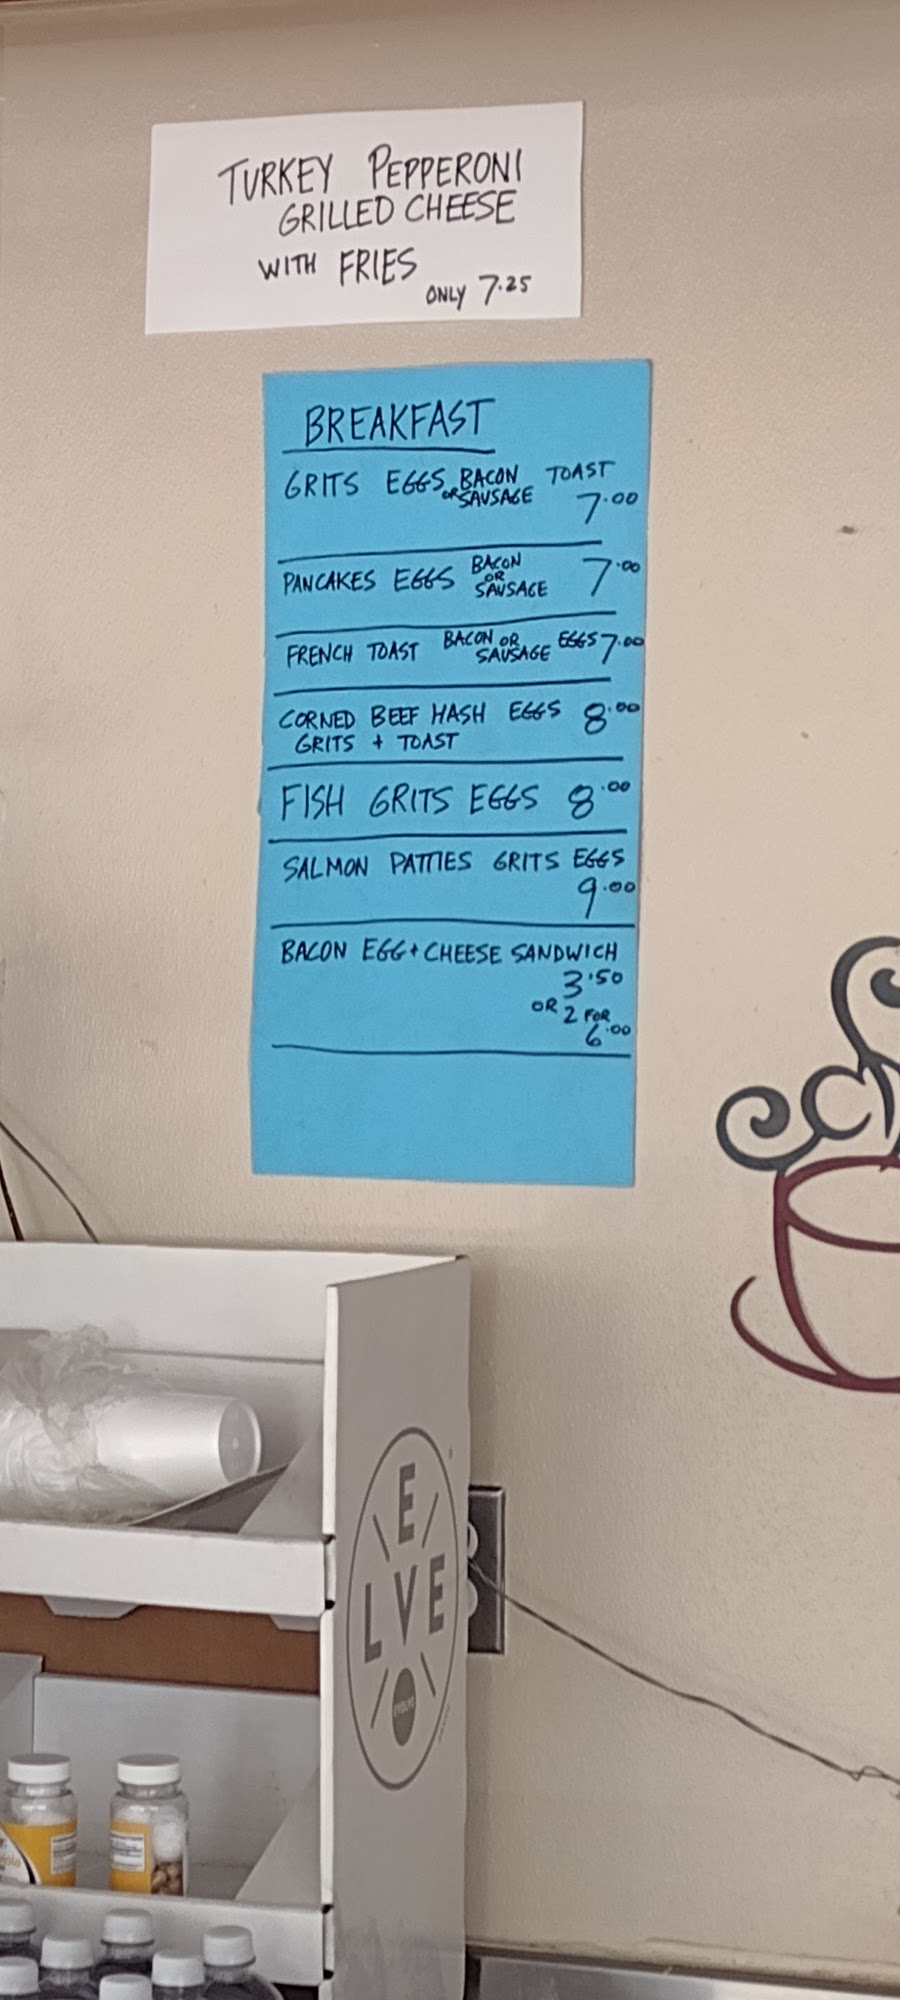 TURKEY PEPPERONI
GRILLED CHEESE
WITH FRIES
ONLY 7.25
BREAKFAST
GRITS EGGS BACON OR SAUSAGE TOAST
7.00
PANCAKES EGGS BACON OR SAUSAGE 7.00
FRENCH TOAST BACON OR SAUSAGE EGGS 7.00
CORNED BEEF HASH EGGS 8.00
GRITS + TOAST
FISH GRITS EGGS 8.00
SALMON PATTIES GRITS EGGS
9.00
BACON EGG + CHEESE SANDWICH
3.50
OR 2 FOR
6.00
E
LVE
EVOLVE